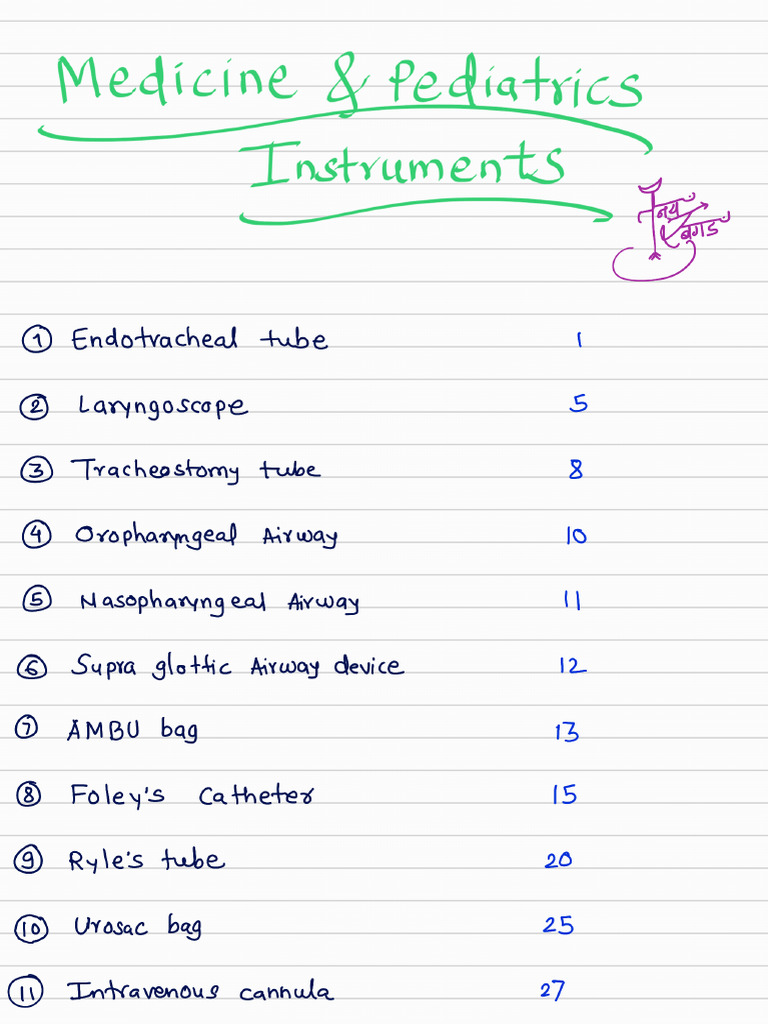 Medicine & Pediatrics
Instruments
① Endotracheal tube 1
② Laryngoscope 5
③ Tracheostomy tube 8
④ Oropharyngeal Airway 10
⑤ Nasopharyngeal Airway 11
⑥ Supra glottic Airway device 12
⑦ AMBU bag 13
⑧ Foley's Catheter 15
⑨ Ryle's tube 20
⑩ Urosac bag 25
⑪ Intravenous cannula 27